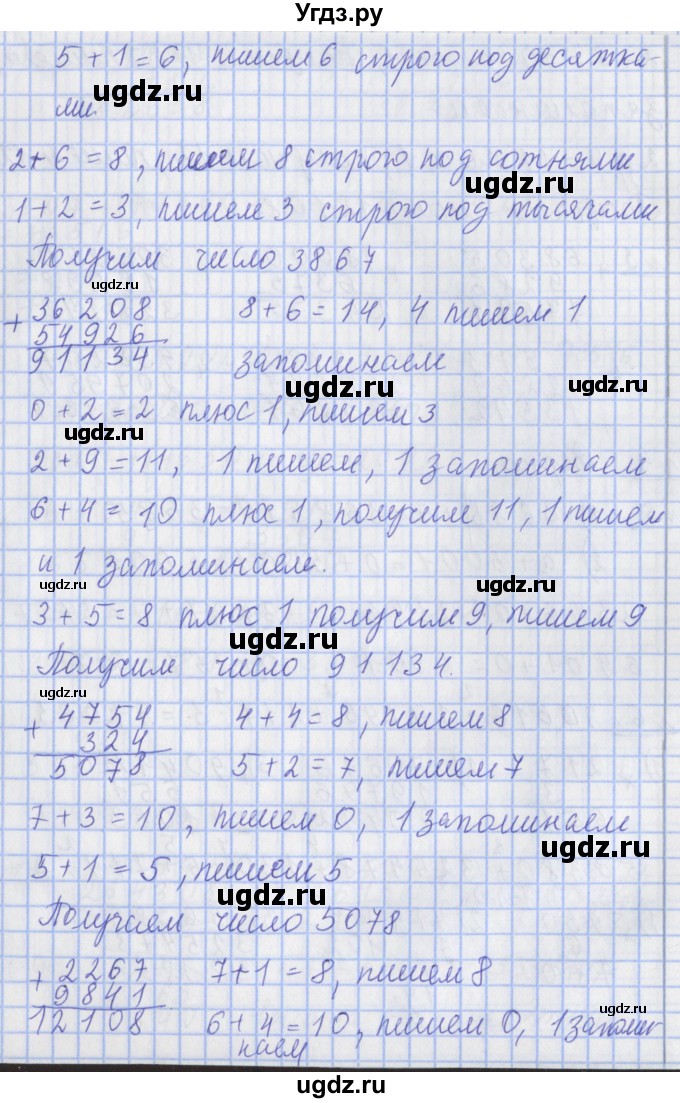 Угдз.ру
5 + 1 = 6, пишем 6 строго под десятка-
ugdz.ru
ми.
2 + 6 = 8, пишем 8 строго под сотнями
ugdz.ru
1 + 2 = 3, пишем 3 строго под тысячами
Получим число 3867
ugdz.ru
+ 36208 8 + 6 = 14, 4 пишем 1
54926
91134 запоминаем
ugdz.ru
ugdz.ru
0 + 2 = 2 плюс 1, пишем 3
ugdz.ru
2 + 9 = 11, 1 пишем, 1 запоминаем
6 + 4 = 10 плюс 1, получим 11, 1 пишем
и 1 запоминаем.
ugdz.ru
3 + 5 = 8 плюс 1 получим 9, пишем 9
ugdz.ru
Получим число 91134.
ugdz.ru
+ 4754 4 + 4 = 8, пишем 8
324
5078 5 + 2 = 7, пишем 7
ugdz.ru
7 + 3 = 10, пишем 0, 1 запоминаем
ugdz.ru
5 + 1 = 5, пишем 5
ugdz.ru
Получаем число 5078
+ 2267 7 + 1 = 8, пишем 8
9841
12108 6 + 4 = 10, пишем 0, 1 запоми-
ugdz.ru
наем
ugdz.ru